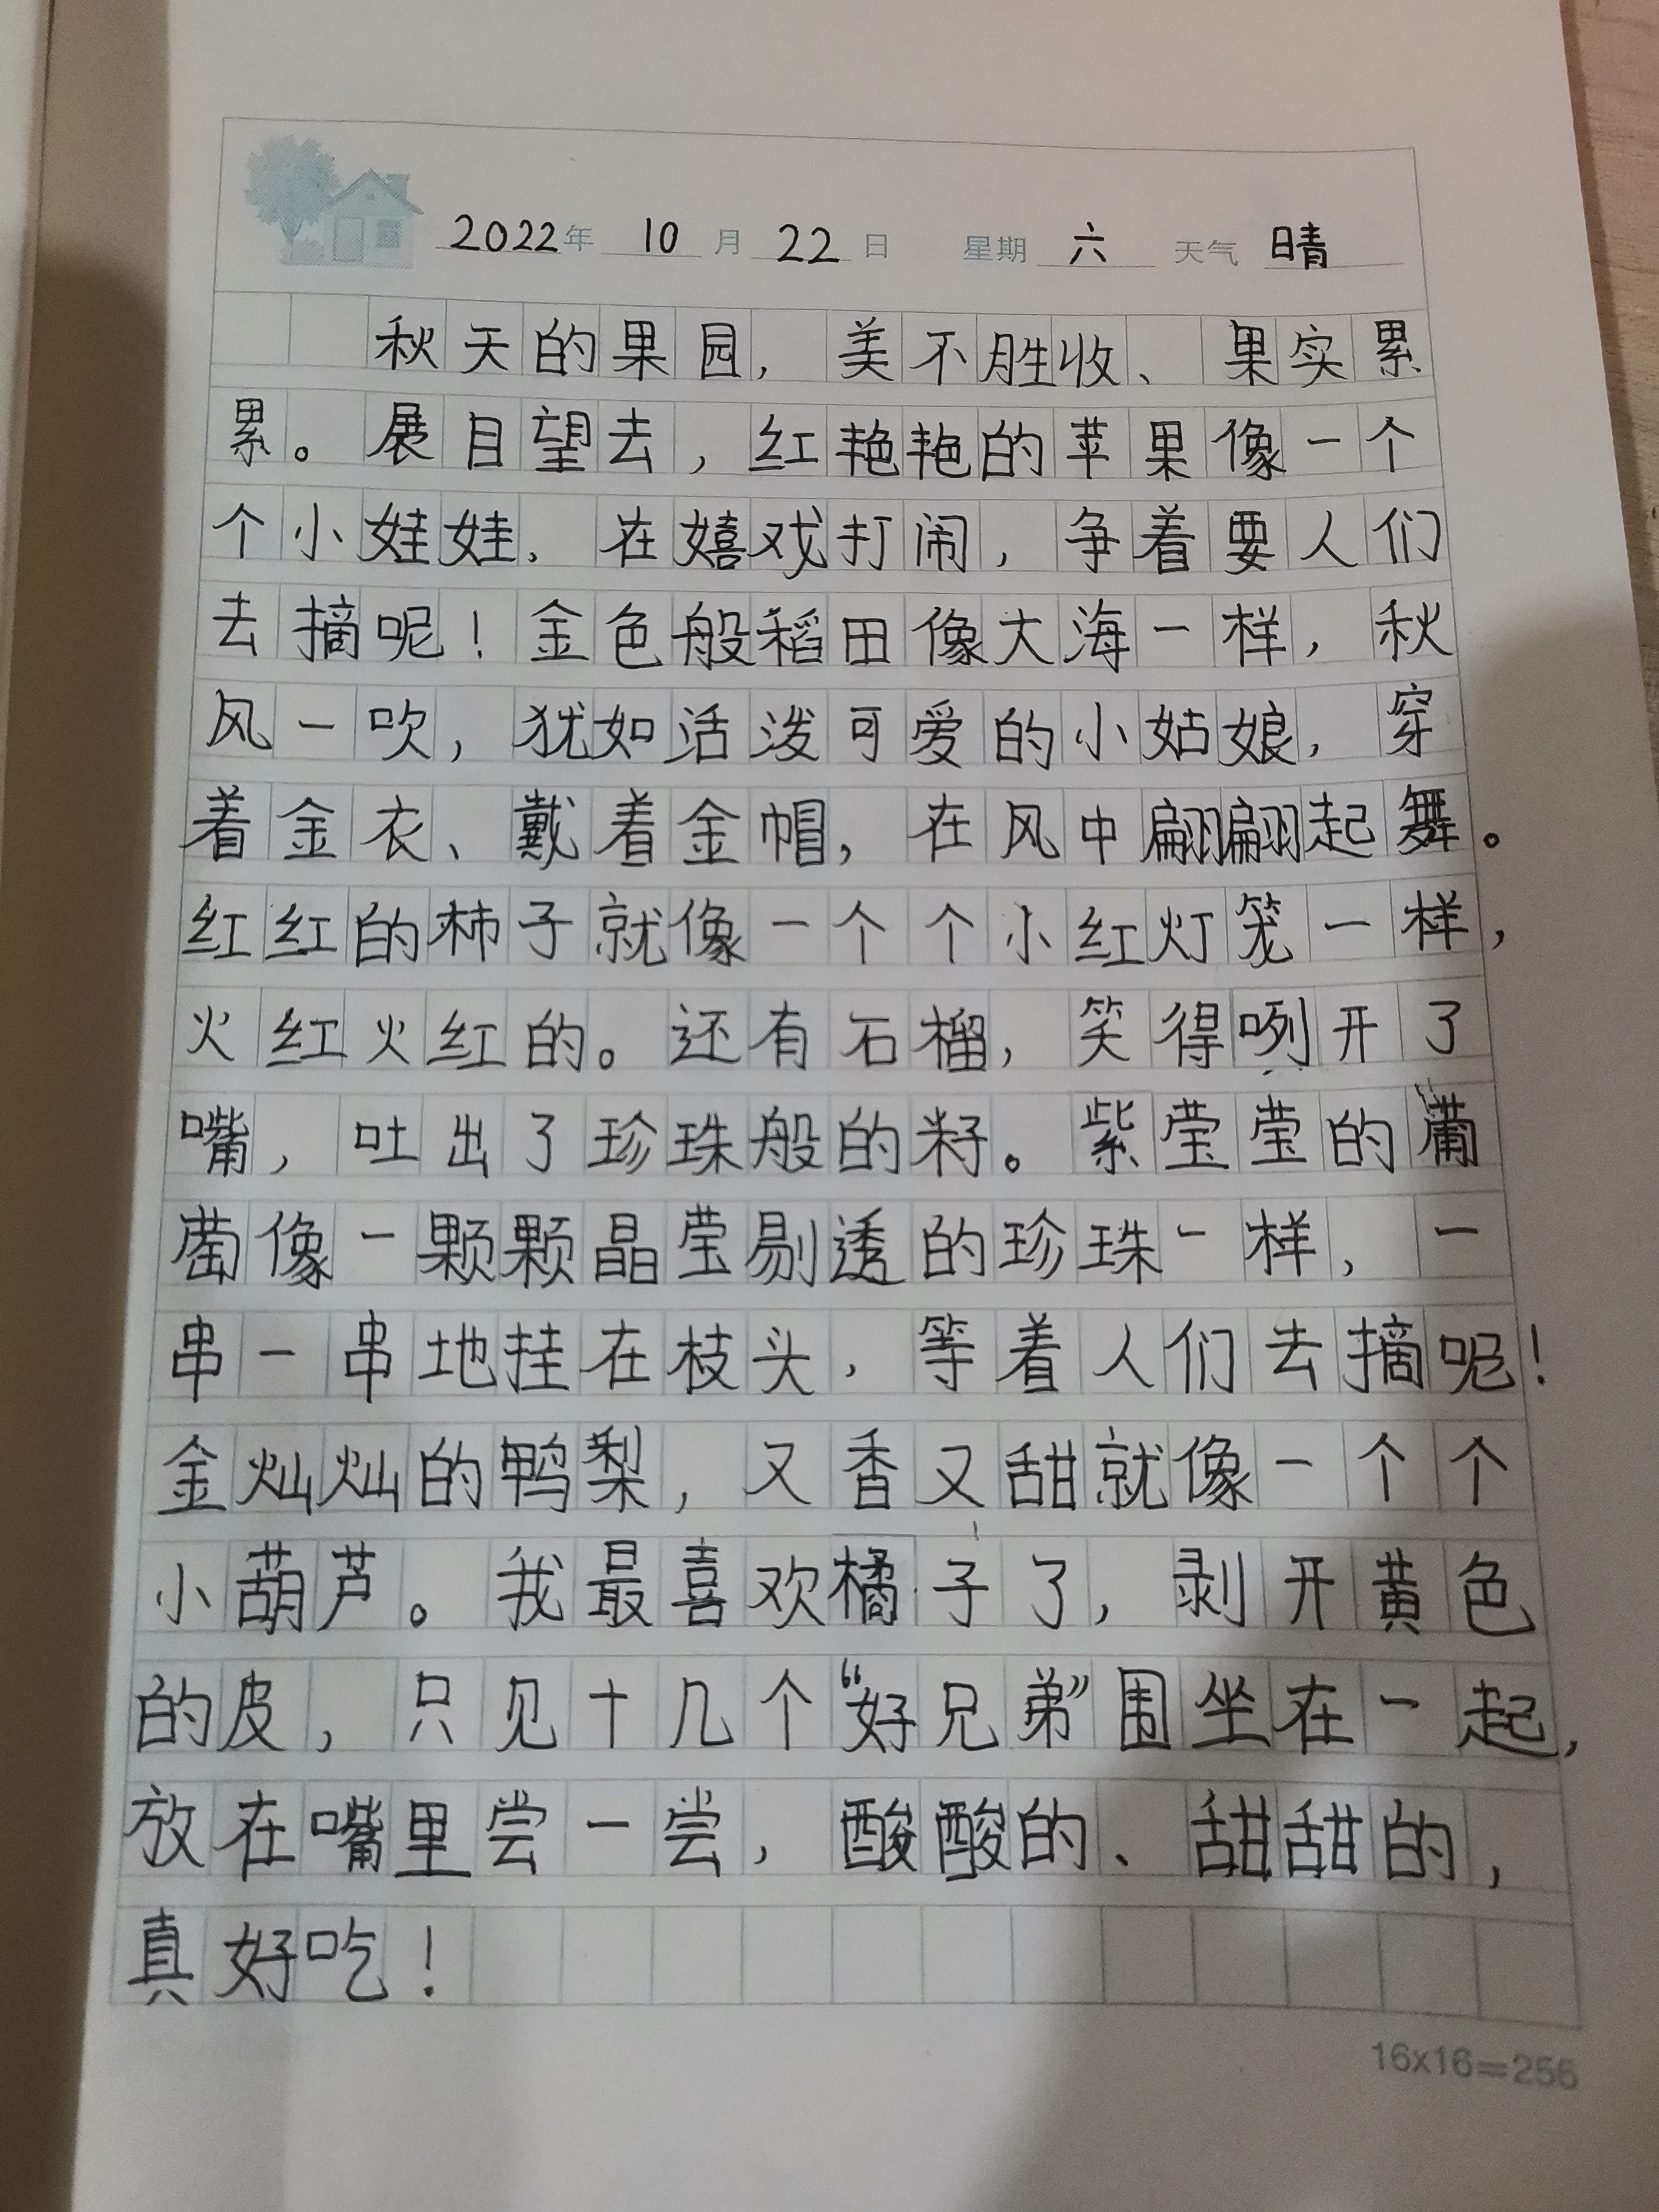 2022年 10 月 22 日 星期 六 天气 晴
秋天的果园，美不胜收、果实累
累。展目望去，红艳艳的苹果像一个
个小娃娃，在嬉戏打闹，争着要人们
去摘呢！金色般稻田像大海一样，秋
风一吹，犹如活泼可爱的小姑娘，穿
着金衣、戴着金帽，在风中翩翩起舞。
红红的柿子就像一个个小红灯笼一样，
火红火红的。还有石榴，笑得咧开了
嘴，吐出了珍珠般的籽。紫莹莹的葡
萄像一颗颗晶莹剔透的珍珠一样，一
串一串地挂在枝头，等着人们去摘呢！
金灿灿的鸭梨，又香又甜就像一个个
小葫芦。我最喜欢橘子了，剥开黄色
的皮，只见十几个“好兄弟”围坐在一起，
放在嘴里尝一尝，酸酸的、甜甜的，
真好吃！
16x16=256